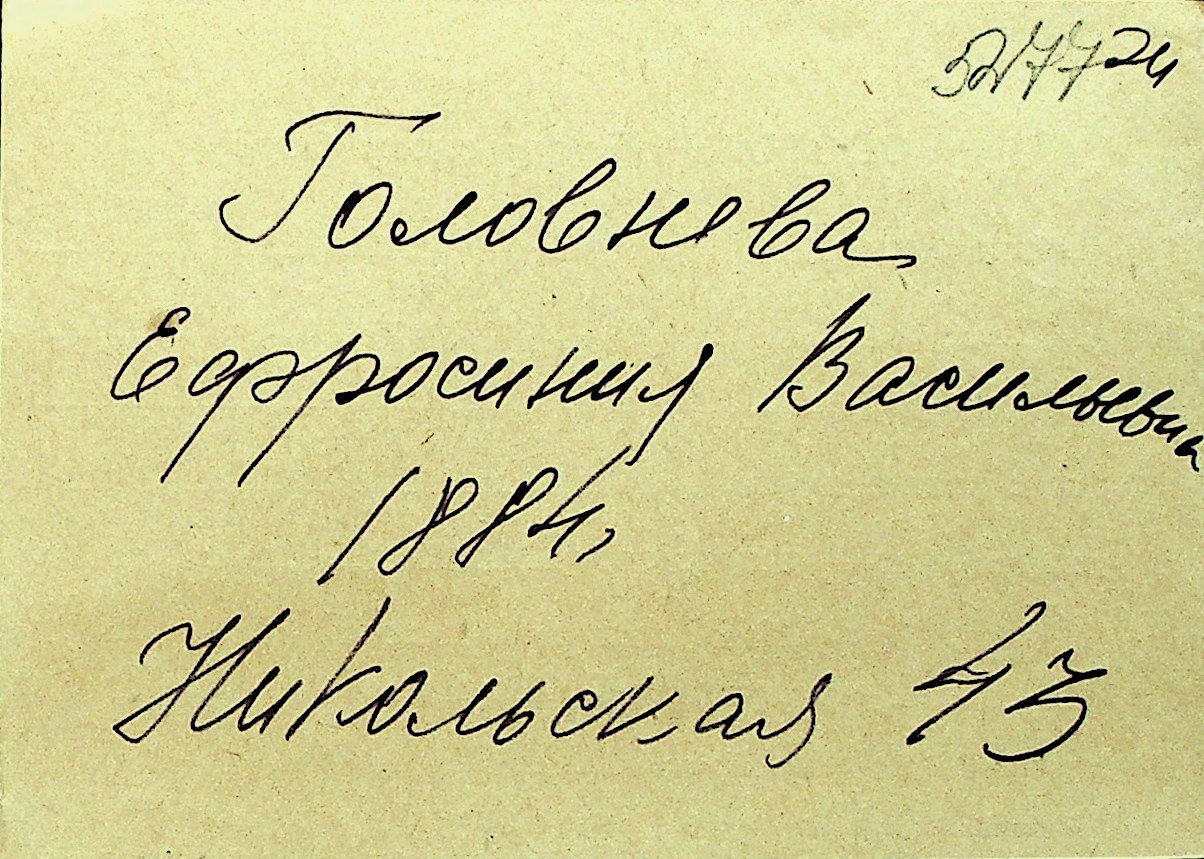 52772и
Головнева
Ефросиния Васильевна
1884,
Никольская 43